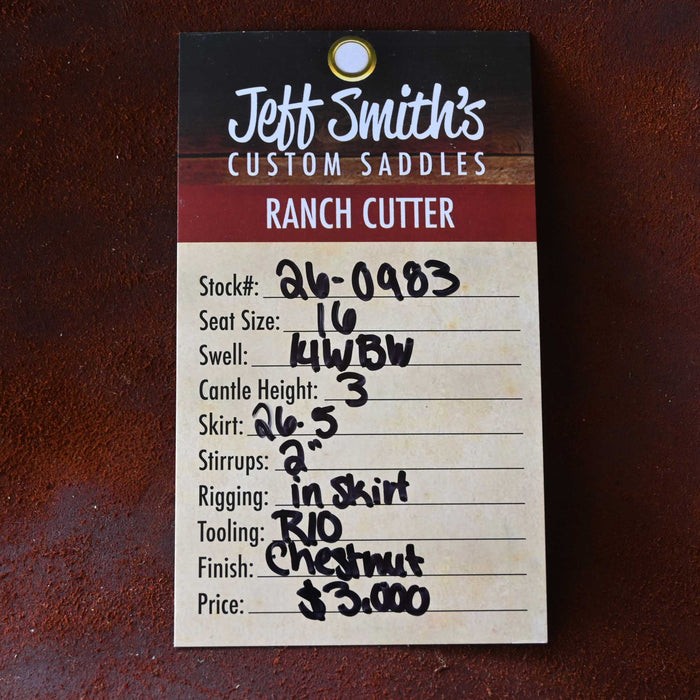 Jeff Smith's
CUSTOM SADDLES
RANCH CUTTER
Stock#: 26-0983
Seat Size: 16
Swell: 14WBW
Cantle Height: 3
Skirt: 26.5
Stirrups: 2"
Rigging: in skirt
Tooling: R10
Finish: Chestnut
Price: $3,000